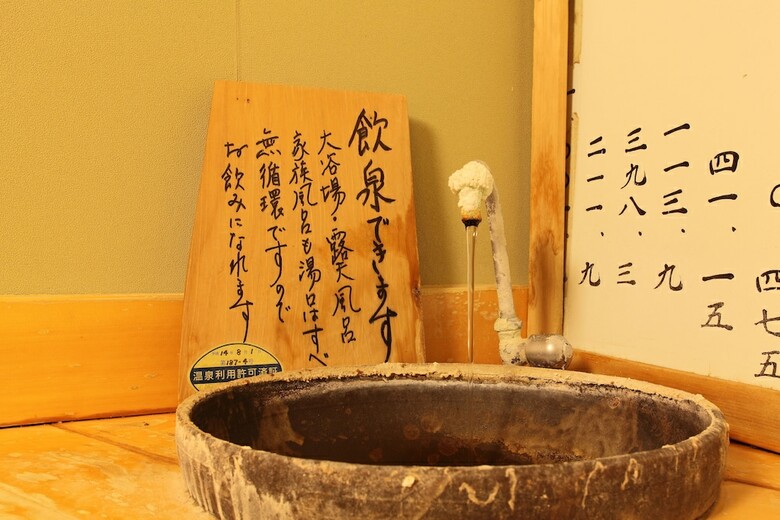 飲泉できます
大浴場・露天風呂
家族風呂も湯口はすべ
無循環ですので
お飲みになれます
14・8・1
127-4
温泉利用許可済証
四七五
四一、一五
一一三、九
三九八、三
二一一、九